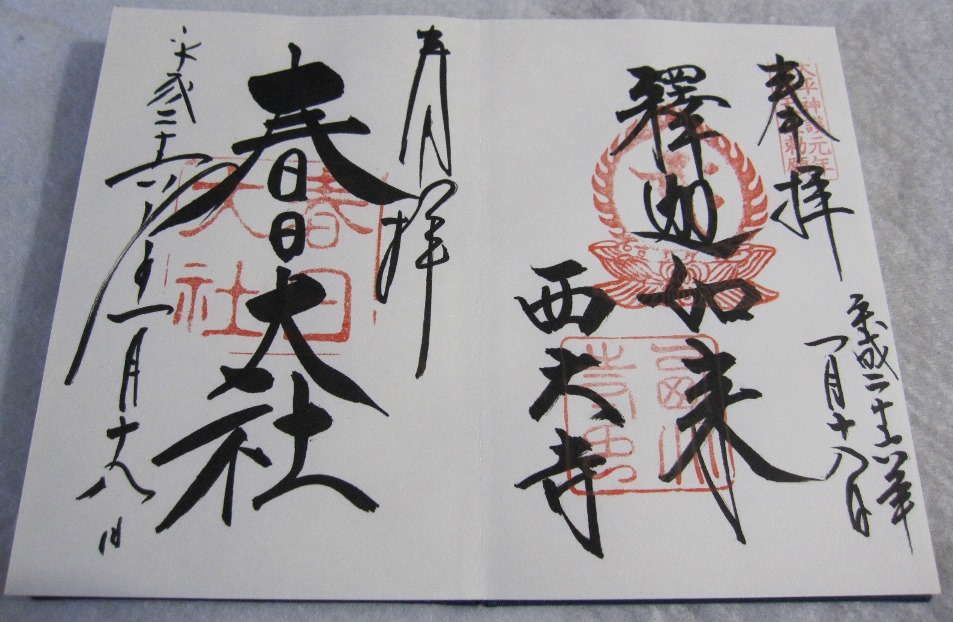 奉拝
天平神護元年
平成二十六年
一月十八日
釋迦如来
西大寺
奉拝
春日大社
春日
大社
平成二十六年一月十八日